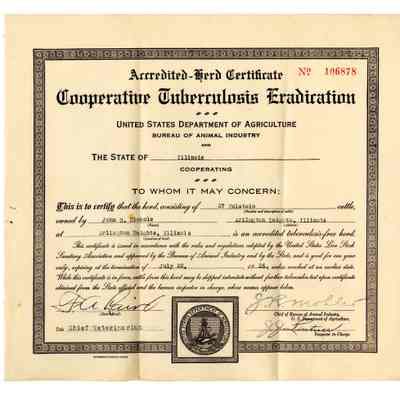 Accredited-Herd Certificate
No 106878
Cooperative Tuberculosis Eradication
UNITED STATES DEPARTMENT OF AGRICULTURE
BUREAU OF ANIMAL INDUSTRY
AND
THE STATE OF Illinois
COOPERATING
TO WHOM IT MAY CONCERN:
This is to certify that the herd, consisting of 27 Holstein cattle,
owned by John H. Arlington Heights, Illinois
at Arlington Heights, Illinois is an accredited tuberculosis-free herd.
This certificate is issued in accordance with the rules and regulations adopted by the United States Live Stock
Sanitary Association and approved by the Bureau of Animal Industry and by the State, and is good for one year
only, expiring at the termination of July 12, unless revoked at an earlier date.
While this certificate is in force, cattle from this herd may be shipped interstate without further tuberculin test upon certificate
obtained from the State official and the bureau inspector in charge, whose names appear below.
J R Mohler
Chief of Bureau of Animal Industry,
U. S. Department of Agriculture.
Inspector in Charge.
Chief Veterinarian